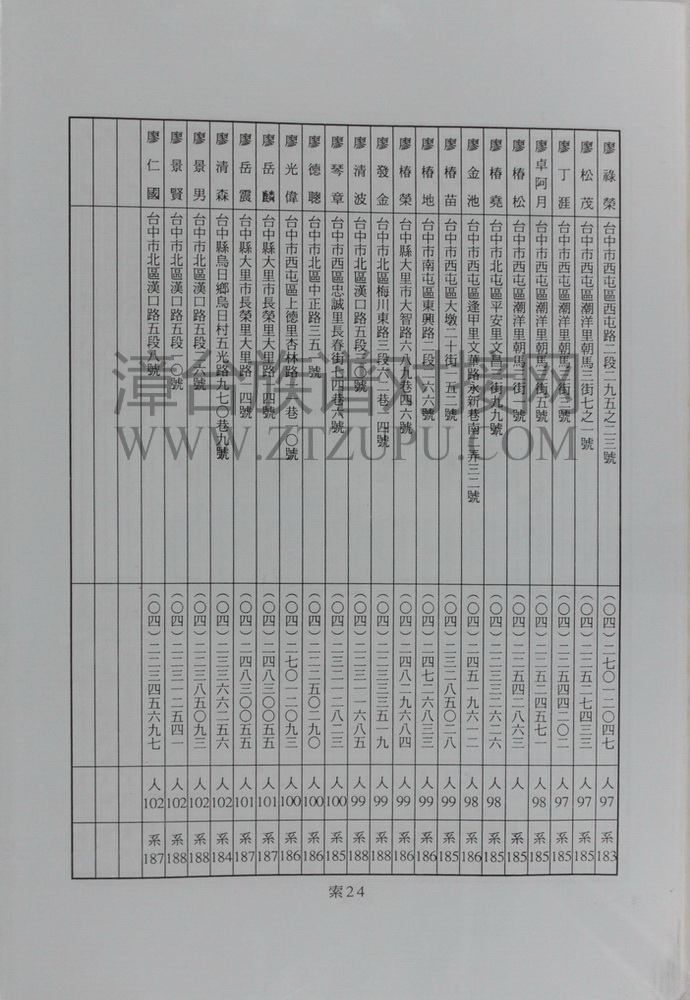 廖祿榮 台中市西屯區西屯路二段二九五之二三號 (〇四)二七〇一二〇四七 人97 系183
廖松茂 台中市西屯區潮洋里朝馬三街七之一號 (〇四)二二五二七四三三 人97 系185
廖丁涯 台中市西屯區潮洋里朝馬 街三號 (〇四)二二五四四二〇二 人97 系185
廖卓阿月 台中市西屯區潮洋里朝馬 街五號 (〇四)二二五二四五七一 人98 系185
廖椿松 台中市西屯區潮洋里朝馬 街 號 (〇四)二二五四二八六三 人 系185
廖椿堯 台中市北屯區平安里文昌 街九九號 (〇四)二二三三二六二六 人98 系185
廖金池 台中市西屯區逢甲里文華路永新巷南 弄三二號 (〇四)二四五一九六一二 人98 系186
廖椿苗 台中市西屯區大墩二十街一五二號 (〇四)二三二八五〇二八 人99 系185
廖椿地 台中市南屯區東興路二段一六六號 (〇四)二四七二六八三三 人99 系186
廖椿榮 台中縣大里市大智路六八九巷四六號 (〇四)二四八二九六八四 人99 系186
廖發金 台中市北區梅川東路三段六二巷 四號 (〇四)二二三三三五一九 人99 系188
廖清波 台中市北區漢口路五段 〇號 (〇四)二二三一一六八五 人99 系188
廖琴章 台中市西區忠誠里長春街七四巷六號 (〇四)二三二一二八二三 人100 系185
廖德聰 台中市北區中正路三五 號 (〇四)二二二五〇二九〇 人100 系186
廖光偉 台中市西屯區上德里杏林路 巷 〇號 (〇四)二七〇一二〇九三 人100 系186
廖岳麟 台中縣大里市長榮里大里路 四號 (〇四)二四八三〇〇五五 人101 系187
廖岳震 台中縣大里市長榮里大里路 四號 (〇四)二四八三〇〇五五 人101 系187
廖清森 台中縣烏日鄉烏日村五光路九七〇巷九號 (〇四)二三三六六二五六 人102 系184
廖景男 台中市北區漢口路五段 六號 (〇四)二二三八五〇九三 人102 系188
廖景賢 台中市北區漢口路五段 〇號 (〇四)二二三一二五四一 人102 系188
廖仁國 台中市北區漢口路五段八號 (〇四)二二三四五六九七 人102 系187
索24
漳台族谱对接网
WWW.ZTZUPU.COM